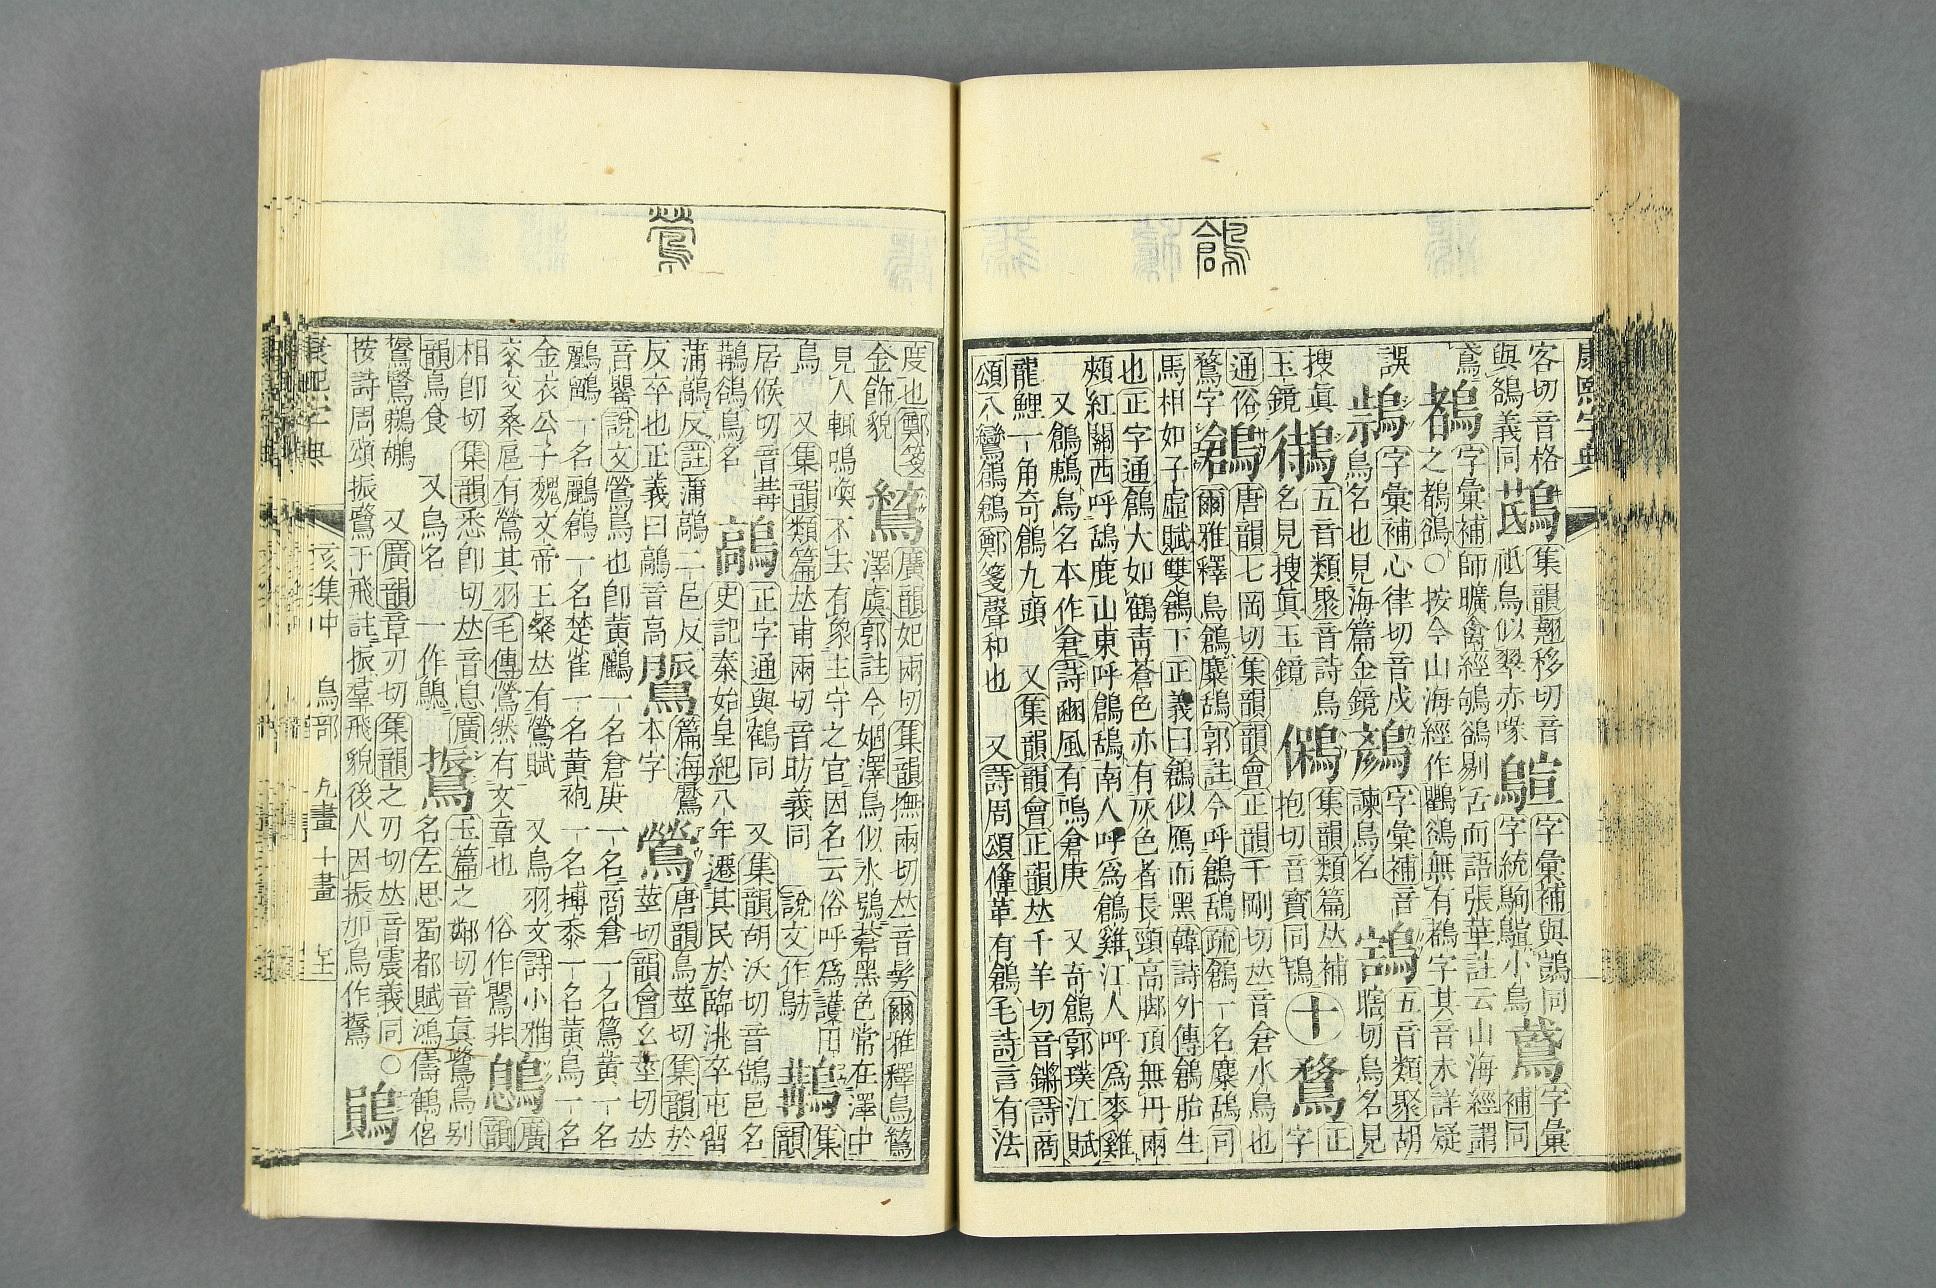 鶬
康熙字典
客切音格
與鵅義同
集韻翹移切音
祗鳥似翠赤喙
字彙補與鵠同
字統駒䳦小鳥
鳶
字彙
補同
鳶
字彙補師曠禽經鴝鵒剔舌而語張華註云山海經謂
之䳓鵒○按今山海經作鸜鵒無有䳓字其音未詳疑
誤
字彙補心律切音戍
鳥名也見海篇金鏡
字彙補音
諫鳥名
五音類聚胡
瞎切鳥名見
搜眞
玉鏡
五音類聚音詩鳥
名見搜眞玉鏡
集韻類篇𠀤補
抱切音寶同鴇
十
鶩
正
字
通俗
鶩字
鶬
唐韻七岡切集韻韻會正韻千剛切𠀤音倉水鳥也
爾雅釋鳥鶬麋鴰郭註今呼鶬鴰疏鶬一名麋鴰司
馬相如子虛賦雙鶬下正義曰鶬似鴈而黑韓詩外傳鶬胎生
也正字通鶬大如鶴靑蒼色亦有灰色者長頸高脚頂無丹兩
頰紅關西呼鴰鹿山東呼鶬鴰南人呼爲鶬雞江人呼爲麥雞
又鶬鶊鳥名本作倉詩豳風有鳴倉庚 又奇鶬郭璞江賦
龍鯉一角奇鶬九頭 又集韻韻會正韻𠀤千羊切音鏘詩商
頌八鸞鶬鶬鄭箋聲和也 又詩周頌鞗革有鶬毛詩言有法
鶯
度也鄭箋
金飾貌
廣韻妃兩切集韻撫兩切𠀤音髣爾雅釋鳥鶭
澤虞郭註今婟澤鳥似水鴞蒼黑色常在澤中
見人輒鳴喚不去有象主守之官因名云俗呼爲護田
鳥 又集韻類篇𠀤甫兩切音昉義同 說文作鶭
集
韻
居候切音冓
鶻鵃鳥名
鶮
正字通與鶴同 又集韻胡沃切音鵠邑名
史記秦始皇紀八年遷其民於臨洮卒屯留
蒲鶮反註蒲鶮二邑反
反卒也正義曰鶮音高
篇海鷹
本字
鶯
唐韻烏莖切集韻於
莖切韻會幺莖切𠀤
音罌說文鶯鳥也卽黃鸝一名倉庚一名商倉一名鵹黃一名
鸝鶹一名鸝鶬一名楚雀一名黃袍一名搏黍一名黃鳥一名
金衣公子魏文帝王粲𠀤有鶯賦 又鳥羽文詩小雅
交交桑扈有鶯其羽毛傳鶯然有文章也 俗作鸎非
鷍
廣
韻
相卽切集韻悉卽切𠀤音息廣
韻鳥食 又鳥名 一作鵖
䳲
玉篇之鄰切音眞鷺鳥別
名左思蜀都賦鴻儔鶴侶
鷺鷖鵜鶘 又廣韻章刃切集韻之刃切𠀤音震義同○
按詩周頌振鷺于飛註振羣飛貌後人因振加鳥作䳲
康熙字典
亥集中 鳥部 九畫 十畫